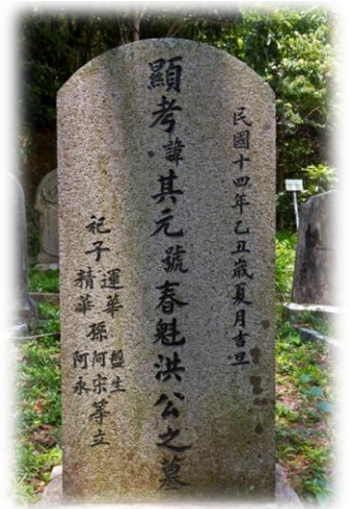 民國十四年乙丑歲夏月吉旦
顯考諱其元號春魁洪公之墓
祀子運華精華孫盤生阿宗阿永等立